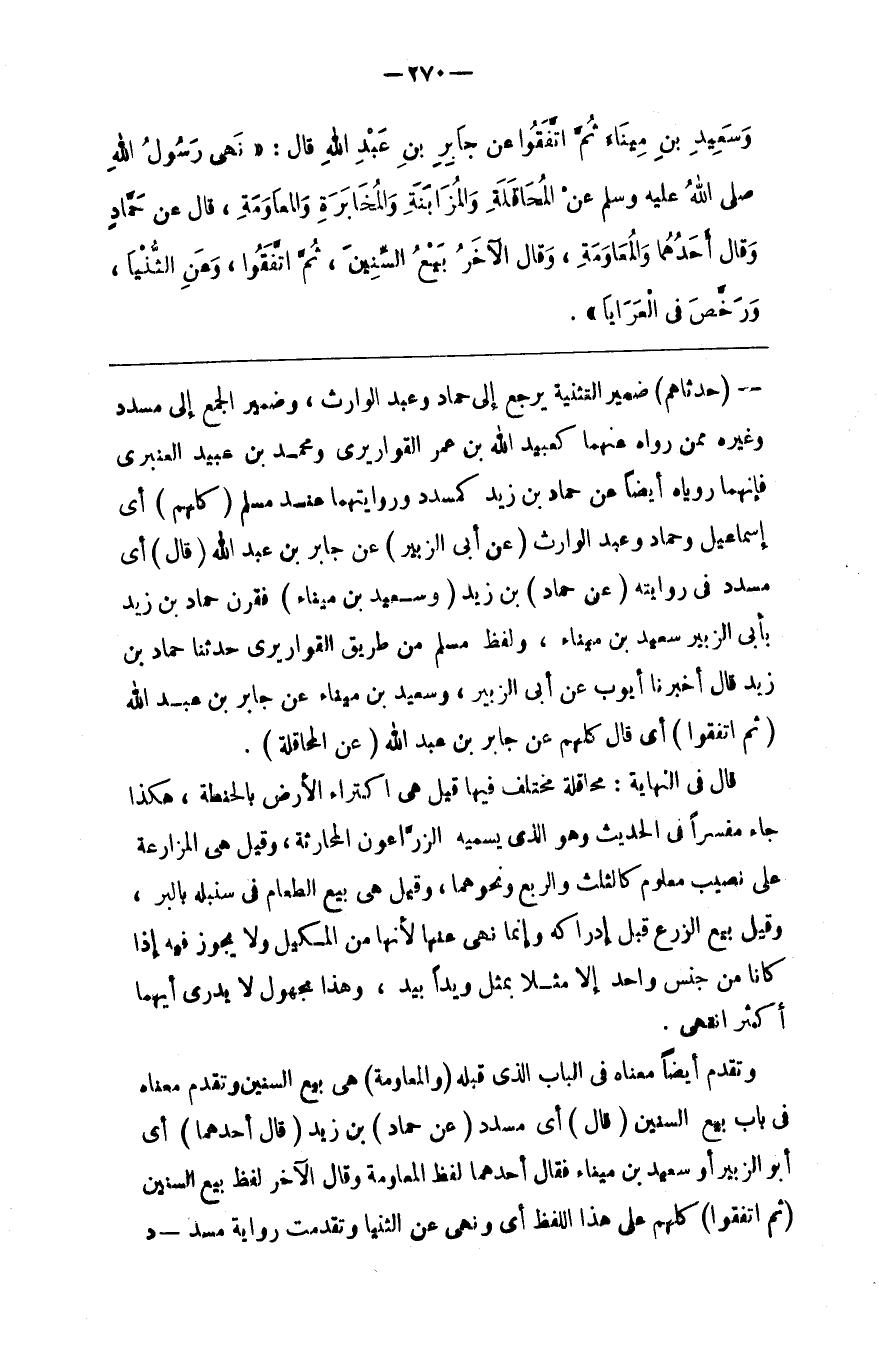 — ٢٧٠ —
وَسَعِيدِ بنِ مِينَاء ثُمَّ اتَّفَقُوا عن جَابِرِ بنِ عَبْدِ اللهِ قال : « نَهى رَسُولُ اللهِ
صلى اللهُ عليه وسلم عن المُحَاقَلَةِ وَالمُزَابَنَةِ وَالمُخَابَرَةِ وَالمعاوَمَةِ ، قال عن حَمَّادٍ
وَقال أَحَدُهُما وَالمُعَاوَمَةِ ، وَقال الآخَرُ بَيْعُ السِّنِينَ ، ثُمَّ اتَّفَقُوا ، وَعَنِ الثُّنْيَا ،
وَرَخَّصَ فى الْعَرَايا » .
-- (حدثاهم) ضمير التثنية يرجع إلى حماد وعبد الوارث ، وضمير الجمع إلى مسدد
وغيره ممن رواه عنهما كعبيد الله بن عمر القواريرى ومحمد بن عبيد العنبرى
فإنهما روياه أيضاً عن حماد بن زيد كمسدد وروايتهما عند مسلم ( كلهم ) أى
إسماعيل وحماد وعبد الوارث ( عن أبى الزبير ) عن جابر بن عبد الله ( قال ) أى
مسدد فى روايته ( عن حماد ) بن زيد ( وسعيد بن ميناء ) فقرن حماد بن زيد
بأبى الزبير سعيد بن ميناء ، ولفظ مسلم من طريق القواريرى حدثنا حماد بن
زيد قال أخبرنا أيوب عن أبى الزبير ، وسعيد بن ميناء عن جابر بن عبد الله
( ثم اتفقوا ) أى قال كلهم عن جابر بن عبد الله ( عن المحاقلة ) .
قال فى النهاية : محاقلة مختلف فيها قيل هى اكتراء الأرض بالحنطة ، هكذا
جاء مفسراً فى الحديث وهو الذى يسميه الزرّاعون المحارثة ، وقيل هى المزارعة
على نصيب معلوم كالثلث والربع ونحوهما ، وقيل هى بيع الطعام فى سنبله بالبر ،
وقيل بيع الزرع قبل إدراكه وإنما نهى عنها لأنها من المكيل ولا يجوز فيه إذا
كانا من جنس واحد إلا مثلا بمثل ويداً بيد ، وهذا مجهول لا يدرى أيهما
أكثر انتهى .
وتقدم أيضاً معناه فى الباب الذى قبله (والمعاومة) هى بيع السنين وتقدم معناه
فى باب بيع السنين ( قال ) أى مسدد ( عن حماد ) بن زيد ( قال أحدهما ) أى
أبو الزبير أو سعيد بن ميناء فقال أحدهما لفظ المعاومة وقال الآخر لفظ بيع السنين
(ثم اتفقوا) كلهم على هذا اللفظ أى ونهى عن الثنيا وتقدمت رواية مسدد —